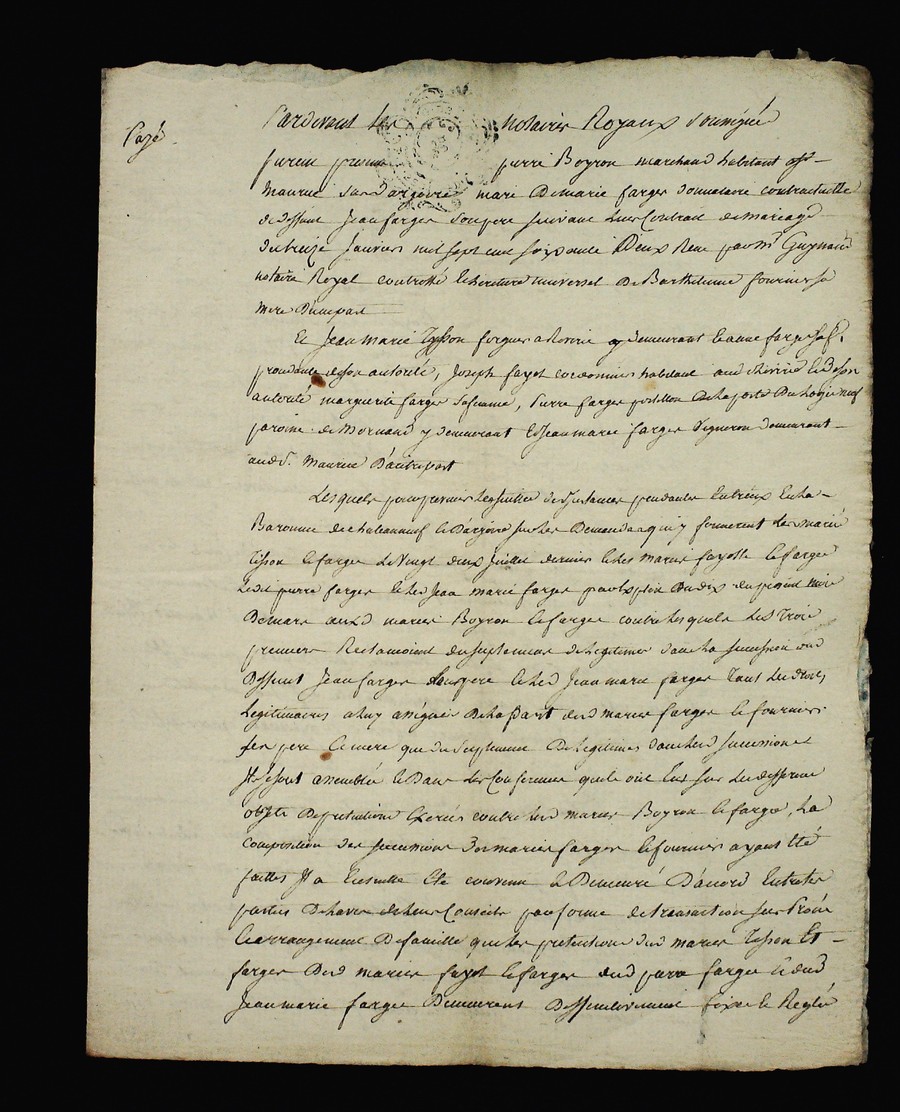 Payé
Pardevant les notaires Royaux soussignés
furent présens pierre Boyron marchand habitant a St
Maurice sur dargoire mari De marie farges donnataire contractuelle
de deffunt Jean farges son pere suivant leur Contrat de mariage
du treize Janvier mil sept cent soixante Deux Reçu par Me Guynand
notaire Royal controllé heritiere universel De Barthelemie fournier sa
mere D'une part
Et Jean Marie Tisson forgeur a Riverie y demeurant anne farges sa f.
procedante de son autorité, Joseph fayot cordonnier habitant aud Riverie & De son
autorité margueritte farges sa femme, Pierre farges postillon De la poste De
paroisse de Mornand y demeurant Et Jean marie farges Vigneron demeurant
aud St. Maurice D'autre part
Lesquels pour prevenir les suittes des Instances pendantes Entr'eux En la
Baronnie de chateauneuf & Dargoire sur les Demandes qu'y formerent les mariés
Tisson & farges Le Vingt deux Juillet dernier & les mariés fayolle & farges
Led pierre farges & led Jean marie farges par Exploit Du dix du present mois
De mars aux mariés Boyron & farges contre lesquels les Trois
premiers Reclamoient du suplement de legitimes dans la succession dud
Deffunt Jean farges leur pere & led Jean marie farges Tant les droits
Legitimaires a luy assignés De la part desd mariés farges & fournier
ses pere & mere que du suplement De legitimes dans leurs successions
Ils se sont assemblés & Dans les Conferences qu'ils ont Eus sur les differents
objets De petitions Exercés contre lesd mariés Boyron & farges, La
composition des successions Des mariés farges & fournier ayant Eté
faittes Il a Ensuitte Eté convenu & Demeuré D'accord Entre les
parties De l'avis de leurs Conseils par forme de transaction sur Procès
& arrangement De famille que les pretentions desd mariés Tisson Et
farges Desd mariés fayot & farges dud pierre farges & dud
Jean marie farges Demeurent Deffinitivement fixés & Reglés